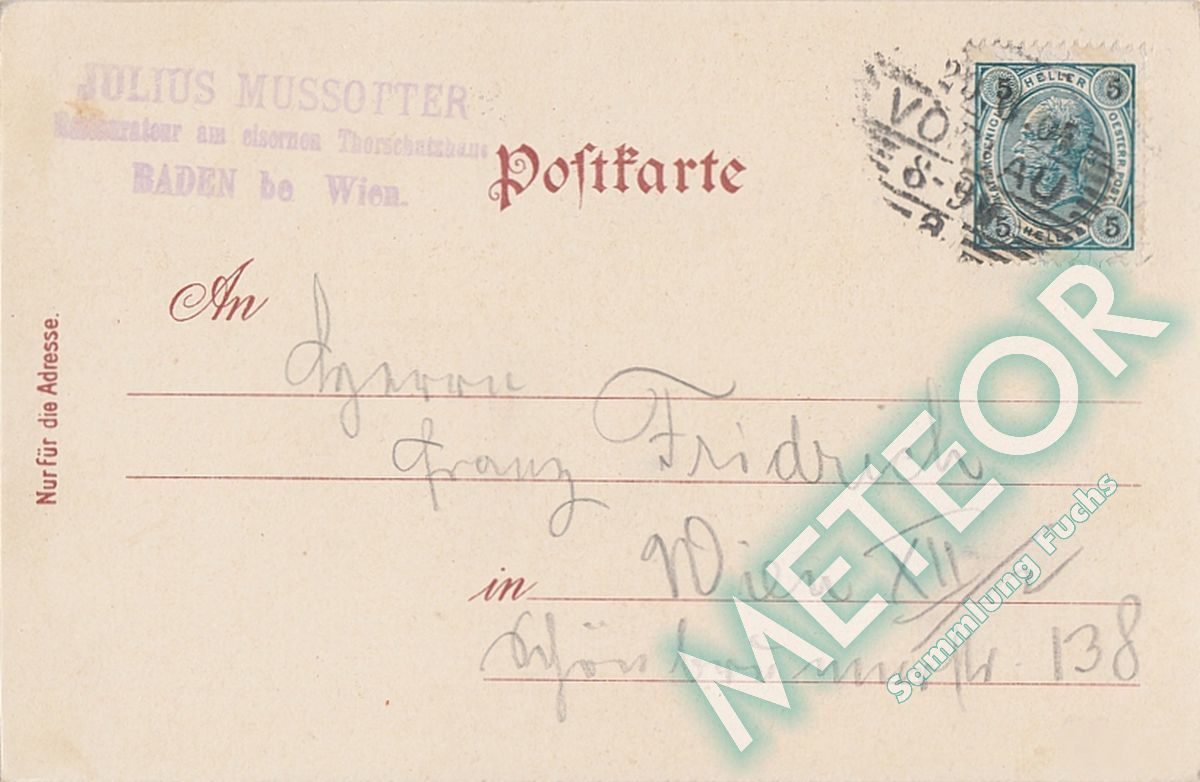 JULIUS MUSSOTTER
Restaurateur am eisernen Thorschutzhaus
BADEN be Wien.
Postkarte
VÖSLAU
8-9
5 HELLER 5
OESTERR. POST
5 HELLER 5
An
Herrn
Franz Fridrich
in Wien XII
Schönbrunnerstr. 138
Nur für die Adresse.
METEOR
Sammlung Fuchs